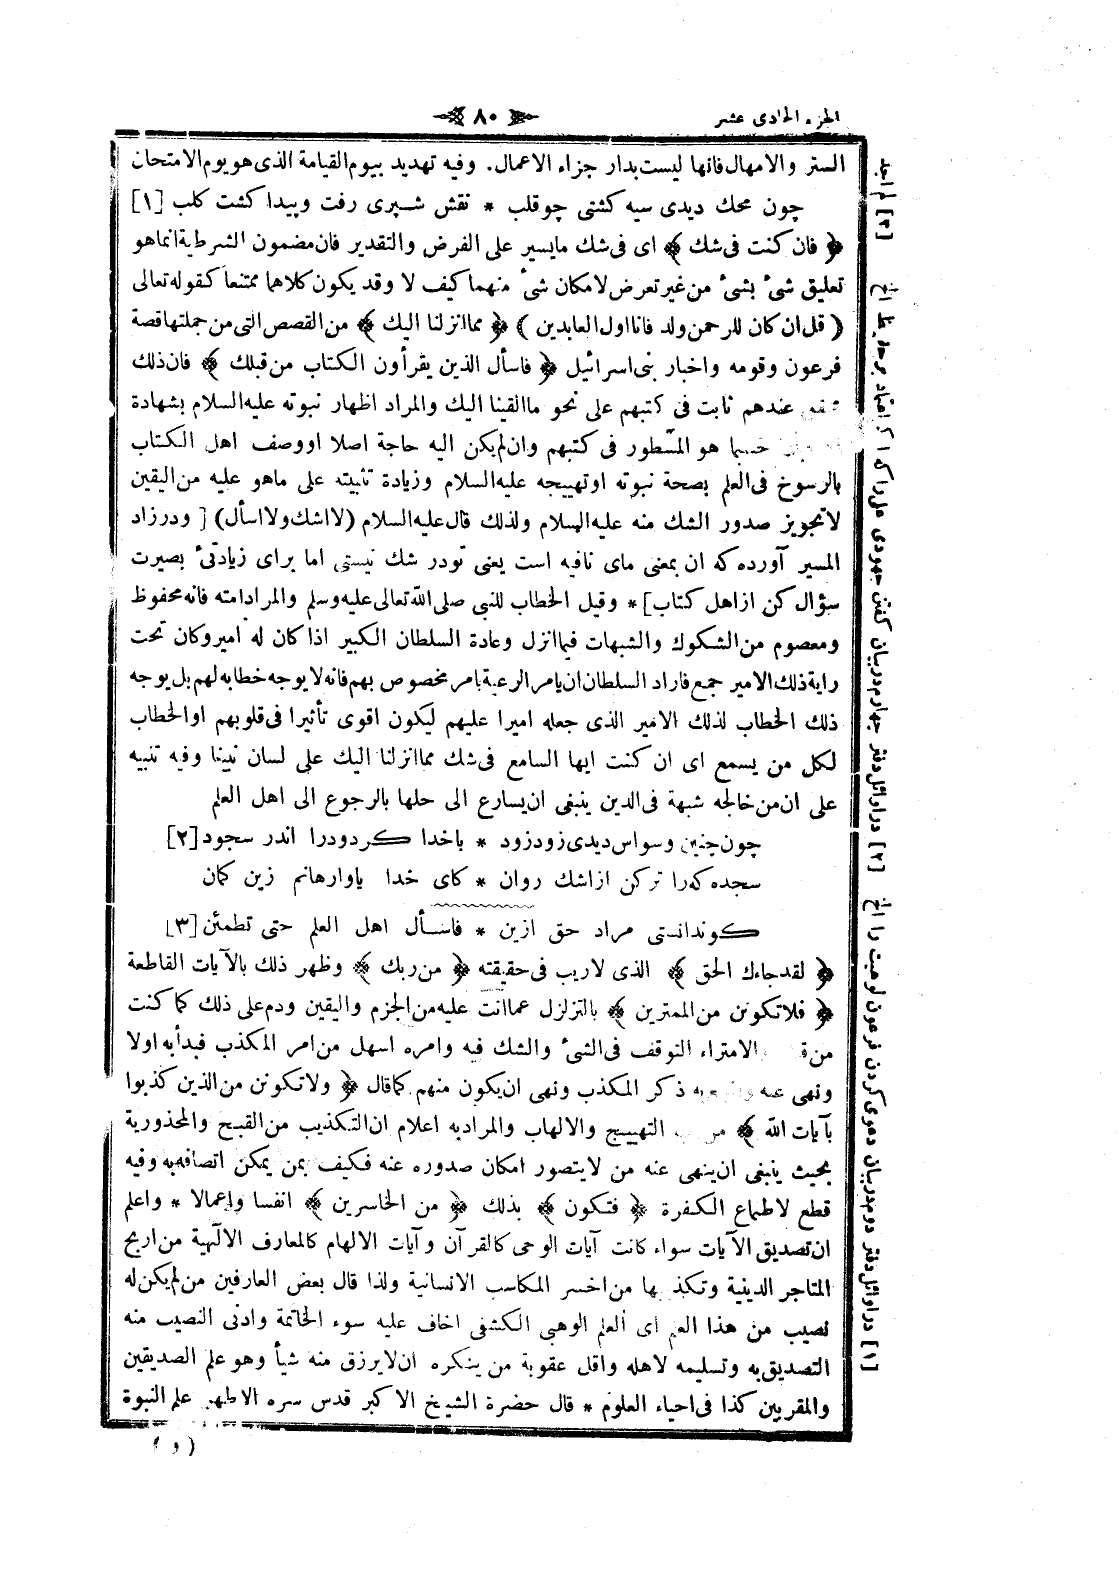 الجزء الحادى عشر
٨٠
الستر والامهال فانها ليست بدار جزاء الاعمال. وفيه تهديد بيوم القيامة الذى هو يوم الامتحان
چون محك ديدى سيه كشتى چو قلب * نقش شيرى رفت وپيدا كشت كلب [١]
﴿ فان كنت فى شك ﴾ اى فى شك مايسير على الفرض والتقدير فان مضمون الشرطية انما هو
تعليق شىء بشىء من غير تعرض لامكان شىء منهما كيف لا وقد يكون كلاهما ممتنعا كقوله تعالى
( قل ان كان للرحمن ولد فانا اول العابدين ) ﴿ مما انزلنا اليك ﴾ من القصص التى من جملتها قصة
فرعون وقومه واخبار بنى اسرائيل ﴿ فاسأل الذين يقرأون الكتاب من قبلك ﴾ فان ذلك
عندهم ثابت فى كتبهم على نحو ما القينا اليك والمراد اظهار نبوته عليه السلام بشهادة
حسبما هو المسطور فى كتبهم وان لم يكن اليه حاجة اصلا او وصف اهل الكتاب
بالرسوخ فى العلم بصحة نبوته او تهييجه عليه السلام وزيادة تثبيته على ماهو عليه من اليقين
لا تجويز صدور الشك منه عليه السلام ولذلك قال عليه السلام (لا اشك ولا اسأل) [ ودر زاد
المسير آورده كه ان بمعنى ماى نافيه است يعنى تو در شك نيستى اما براى زيادتىء بصيرت
سؤال كن از اهل كتاب] * وقيل الخطاب للنبى صلى الله تعالى عليه وسلم والمراد امته فانه محفوظ
ومعصوم من الشكوك والشبهات فيما انزل وعادة السلطان الكبير اذا كان له امير وكان تحت
راية ذلك الامير جمع فاراد السلطان ان يأمر الرعية بامر مخصوص بهم فانه لا يوجه خطابه لهم بل يوجه
ذلك الخطاب لذلك الامير الذى جعله اميرا عليهم ليكون اقوى تأثيرا فى قلوبهم او الخطاب
لكل من يسمع اى ان كنت ايها السامع فى شك مما انزلنا اليك على لسان نبينا وفيه تنبيه
على ان من خالجه شبهة فى الدين ينبغى ان يسارع الى حلها بالرجوع الى اهل العلم
چون چنين وسواس ديدى زود زود * باخدا كرد ودرا اندر سجود [٢]
سجده كه را تركن از اشك روان * كاى خدا ياوارهانم زين كمان
كوندانستى مراد حق ازين * فاسأل اهل العلم حتى تطمئن [٣]
﴿ لقد جاءك الحق ﴾ الذى لا ريب فى حقيقته ﴿ من ربك ﴾ وظهر ذلك بالآيات القاطعة
﴿ فلا تكونن من الممترين ﴾ بالتزلزل عما انت عليه من الجزم واليقين ودم على ذلك كما كنت
من الامتراء التوقف فى الشىء والشك فيه وامره اسهل من امر المكذب فبدأ به اولا
ونهى عنه ذكر المكذب ونهى ان يكون منهم كما قال ﴿ ولا تكونن من الذين كذبوا
بآيات الله ﴾ التهييج والالهاب والمراد به اعلام ان التكذيب من القبح والمحذورية
بحيث ينبغى ان ينهى عنه من لا يتصور امكان صدوره عنه فكيف بمن يمكن اتصافه به وفيه
قطع لاطماع الكفرة ﴿ فتكون ﴾ بذلك ﴿ من الخاسرين ﴾ انفسا واعمالا * واعلم
ان تصديق الآيات سواء كانت آيات الوحى كالقرآن وآيات الالهام كالمعارف الالهية من اربح
المتاجر الدينية وتكذيبها من اخسر المكاسب الانسانية ولذا قال بعض العارفين من لم يكن له
نصيب من هذا العلم اى العلم الوهبى الكشفى اخاف عليه سوء الخاتمة وادنى النصيب منه
التصديق به وتسليمه لاهله واقل عقوبة من ينكره ان لا يرزق منه شيأ وهو علم الصديقين
والمقربين كذا فى احياء العلوم * قال حضرة الشيخ الاكبر قدس سره الاطهر علم النبوة
[١] در اوائل دفتر دوم در بيان دعوى كردن فرعون الوهيت را الخ [٢] در اوائل دفتر چهارم در بيان كفتن جهودى على را كه اكر اعتماد الخ [٣] لم اجد